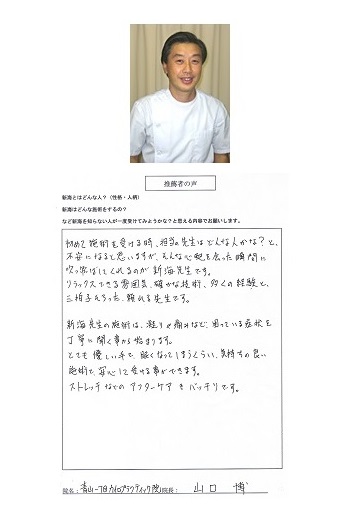 推薦者の声
新海とはどんな人？（性格・人柄）
新海はどんな施術をするの？
など新海を知らない人が一度受けてみようかな？と思える内容でお願いします。
初めて施術を受ける時、担当の先生はどんな人かな？と、
不安になると思いますが、そんな心配を会った瞬間に
吹き飛ばしてくれるのが新海先生です。
リラックスできる雰囲気、確かな技術、多くの経験と、
三拍子そろった、頼れる先生です。
新海先生の施術は、凝りや痛みなど、困っている症状を
丁寧に聞く事から始まります。
とても優しい手で、眠くなってしまうくらい、気持ちの良い
施術で、安心して受ける事ができます。
ストレッチなどのアフターケアもバッチリです。
院名：青山一丁目カイロプラクティック院 院長： 山口 博